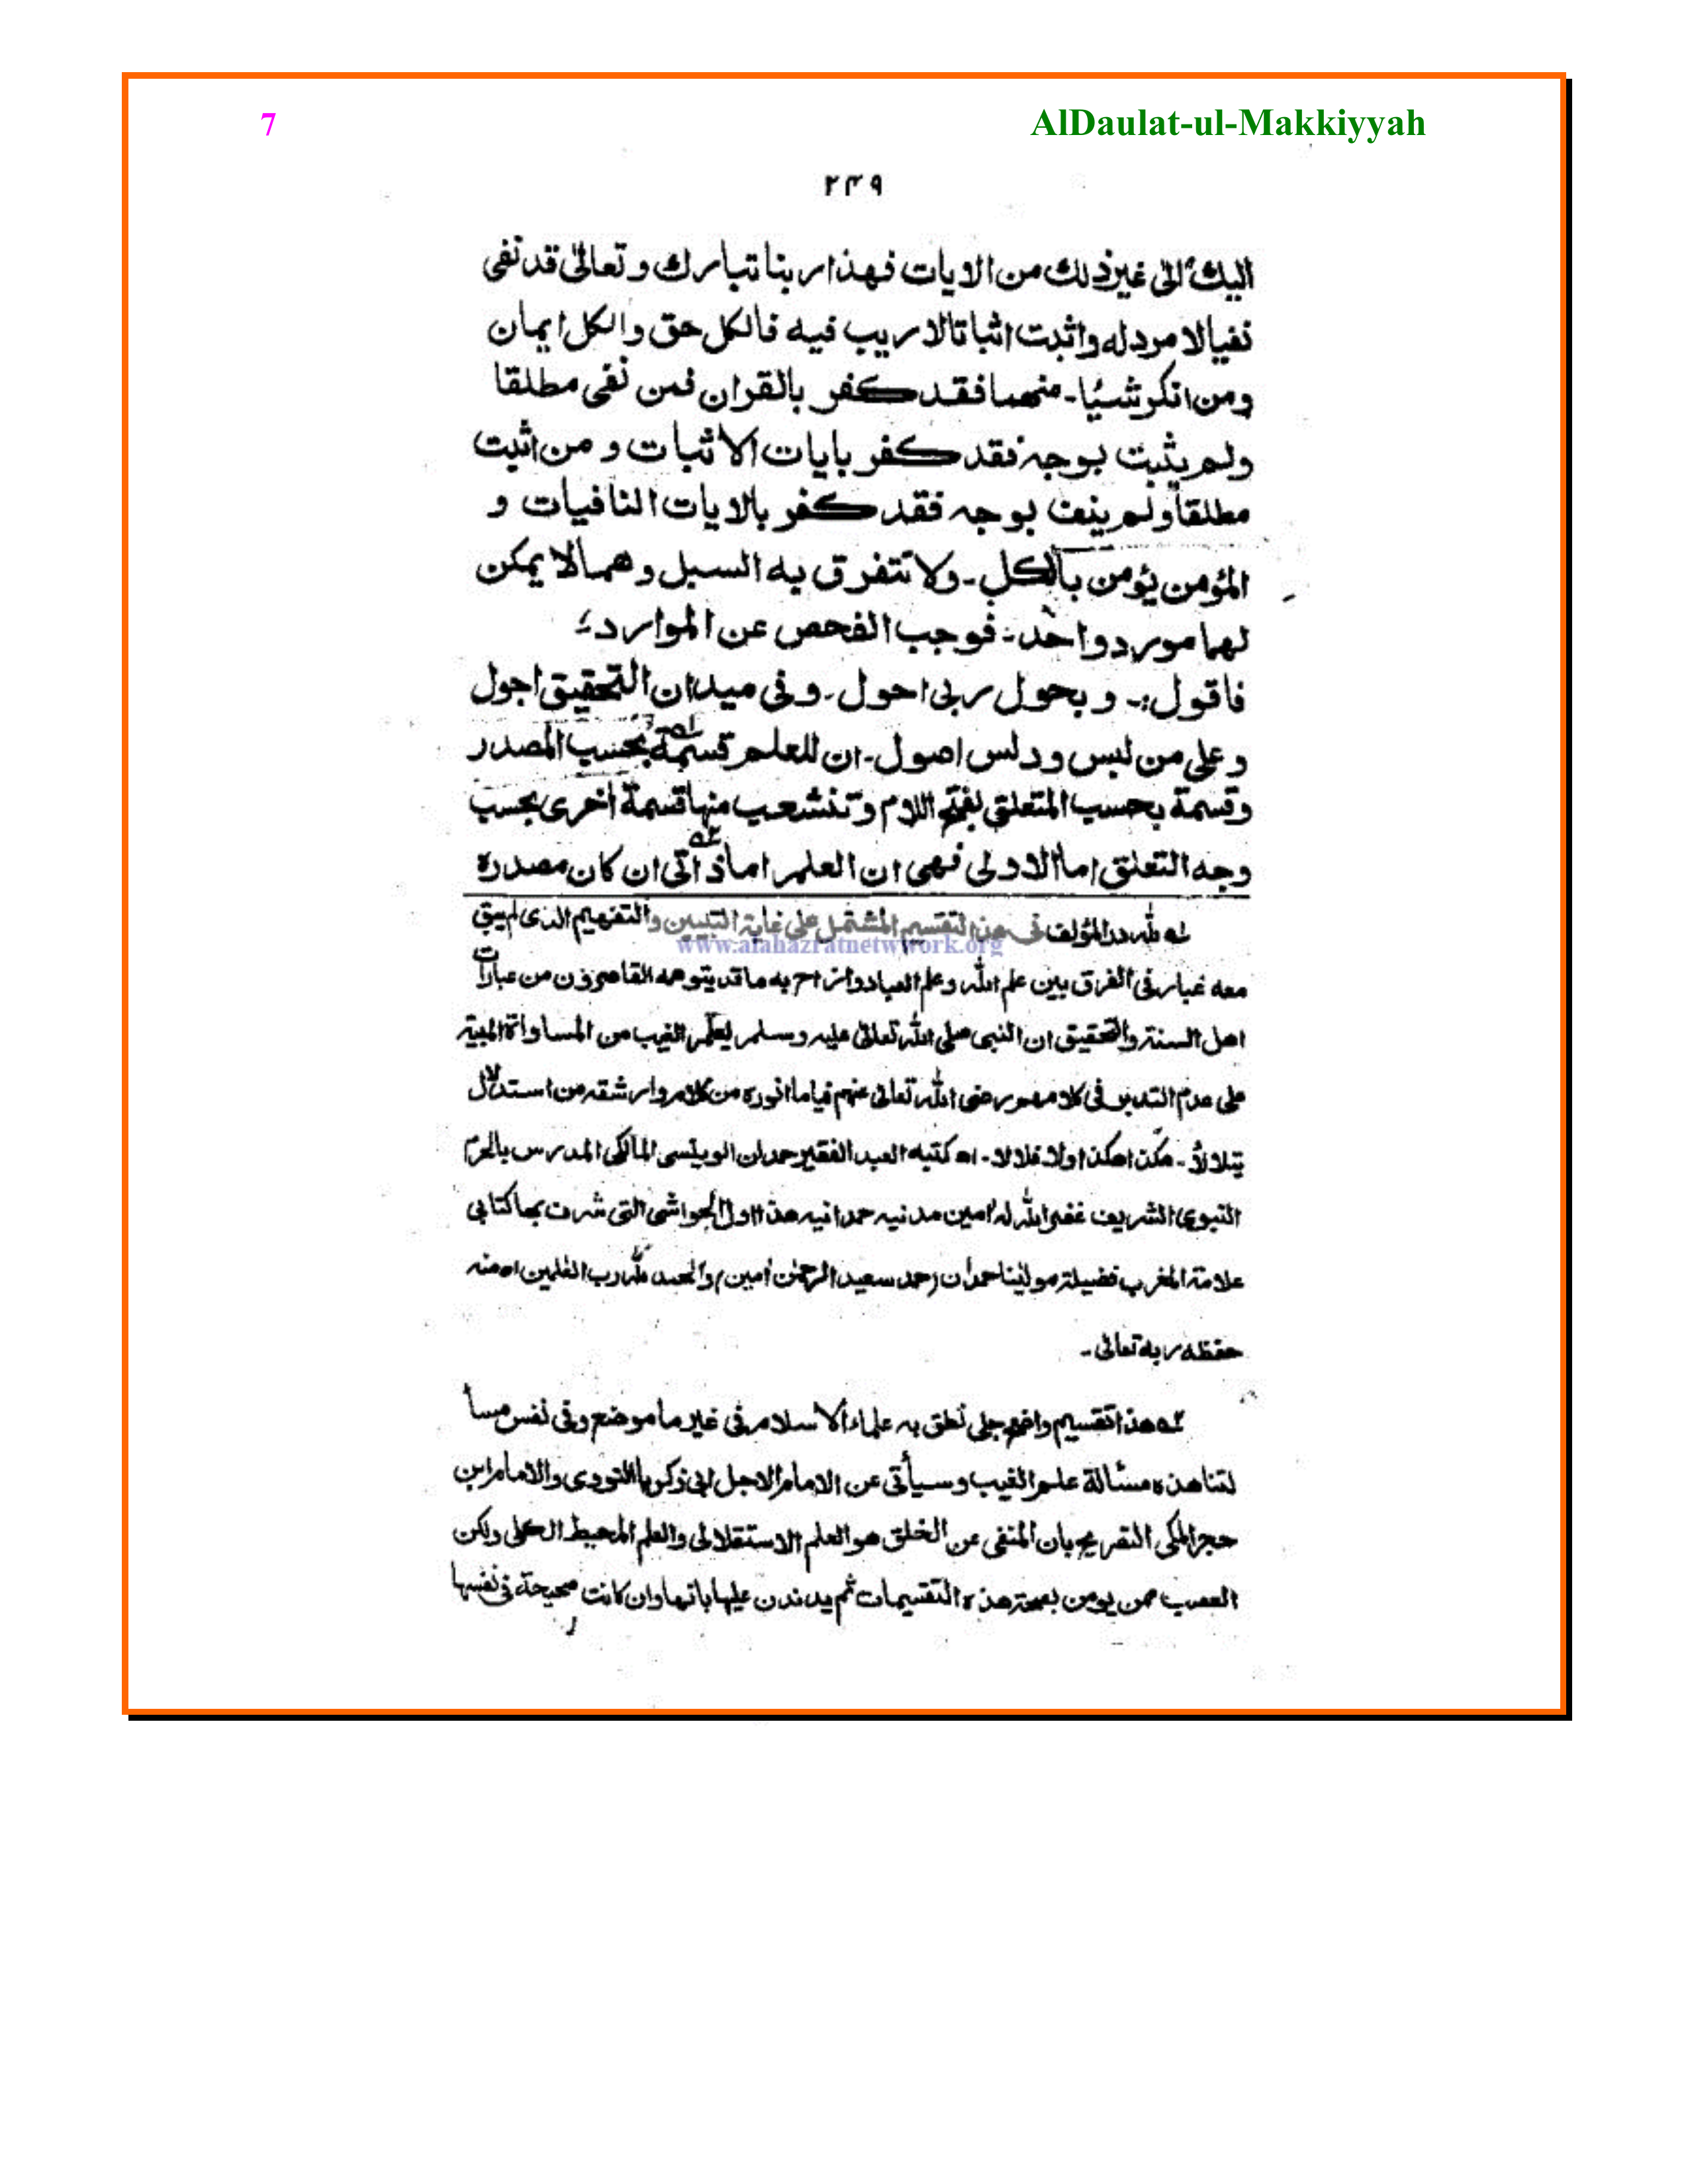 7
AlDaulat-ul-Makkiyyah
۲۴۹
اليك الى غير ذلك من الايات فهذا ربنا تبارك و تعالى قد نفى
نفيا لا مرد له واثبت اثباتا لا ريب فيه فالكل حق والكل ايمان
ومن انكر شيئا۔ منهما فقد كفر بالقران فمن نفى مطلقا
ولم يثبت بوجه فقد كفر بايات الاثبات و من اثبت
مطلقا ولم ينف بوجه فقد كفر بالايات النافيات و
المؤمن يؤمن بالكل۔ ولا تتفرق به السبل وهما لا يمكن
لهما مورد واحد۔ فوجب الفحص عن الموارد
فاقول:۔ و بحول ربى احول۔ وفى ميدان التحقيق اجول
وعلى من لبس ودلس اصول۔ ان للعلم قسمة بحسب المصدر
وقسمة بحسب المتعلق بفتح اللام وتنشعب منها قسمة اخرى بحسب
وجه التعلق اما الاولى فهى ان العلم اما ذاتى ان كان مصدره
له لله در المؤلف فى هذا التقسيم المشتمل على غاية التبيين والتفهيم الذى لم يبق
www.alahazratnetwork.org
معه غبار فى الفرق بين علم الله وعلم العباد وازاح به ما قد يتوهمه القاصرون من عبارات
اهل السنة والتحقيق ان النبى صلى الله تعالى عليه وسلم يعلم الغيب من المساواة المبنية
على عدم التدبر فى كلامهم رضى الله تعالى عنهم فياما انوره من كلام وارشقه من استدلال
هكذا هكذا والا فلا لا۔ اه كتبه العبد الفقير حمدان الونيسى المالكى المدرس بالحرم
النبوى الشريف غفر الله له امين مدنيه حمدانيه هذا اول الحواشى التى شرف بها كتابى
علامة المغرب فضيلة مولينا حمدان حمد سعيد الرحمن امين والحمد لله رب العلمين اه منه
حفظه ربه تعالى۔
٢ه هذا تقسيم واضح جلى نطق به علماء الاسلام فى غير ما موضع وفى نفس مسأ
لتنا هذه مسألة علم الغيب وسيأتى عن الامام الاجل ابى زكريا النووى والامام ابن
حجر المكى التصريح بان المنفى عن الخلق هو العلم الاستقلالى والعلم المحيط الكلى ولكن
العجب ممن يومن بصحة هذه التقسيمات ثم يدندن عليها بانها وان كانت صحيحة فى نفسها